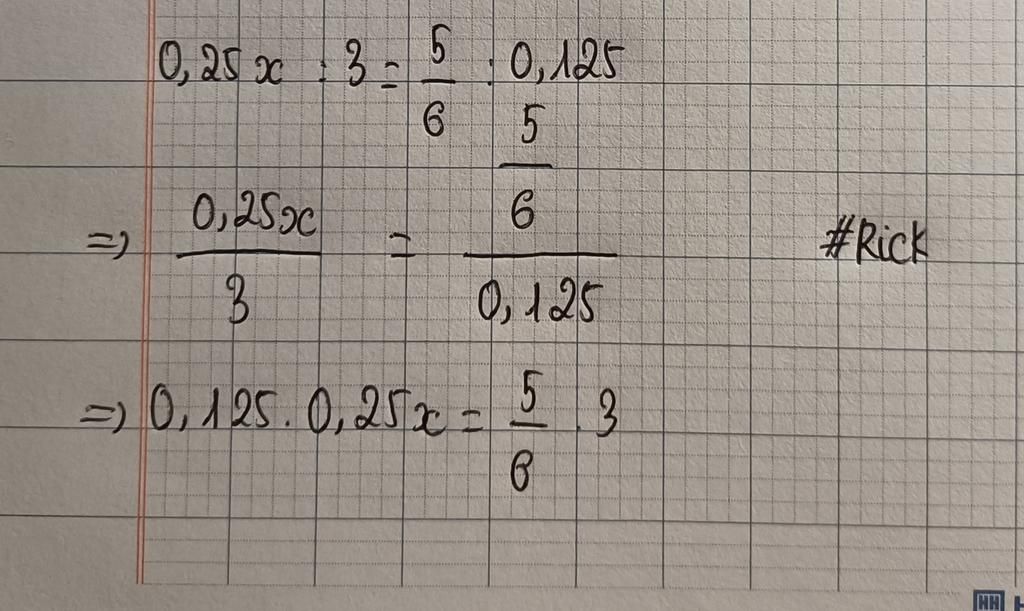 0,25x : 3 = 5/6 : 0,125
=> 0,25x/3 = 5/6/0,125 #Rick
=> 0,125 . 0,25x = 5/6 . 3
HH